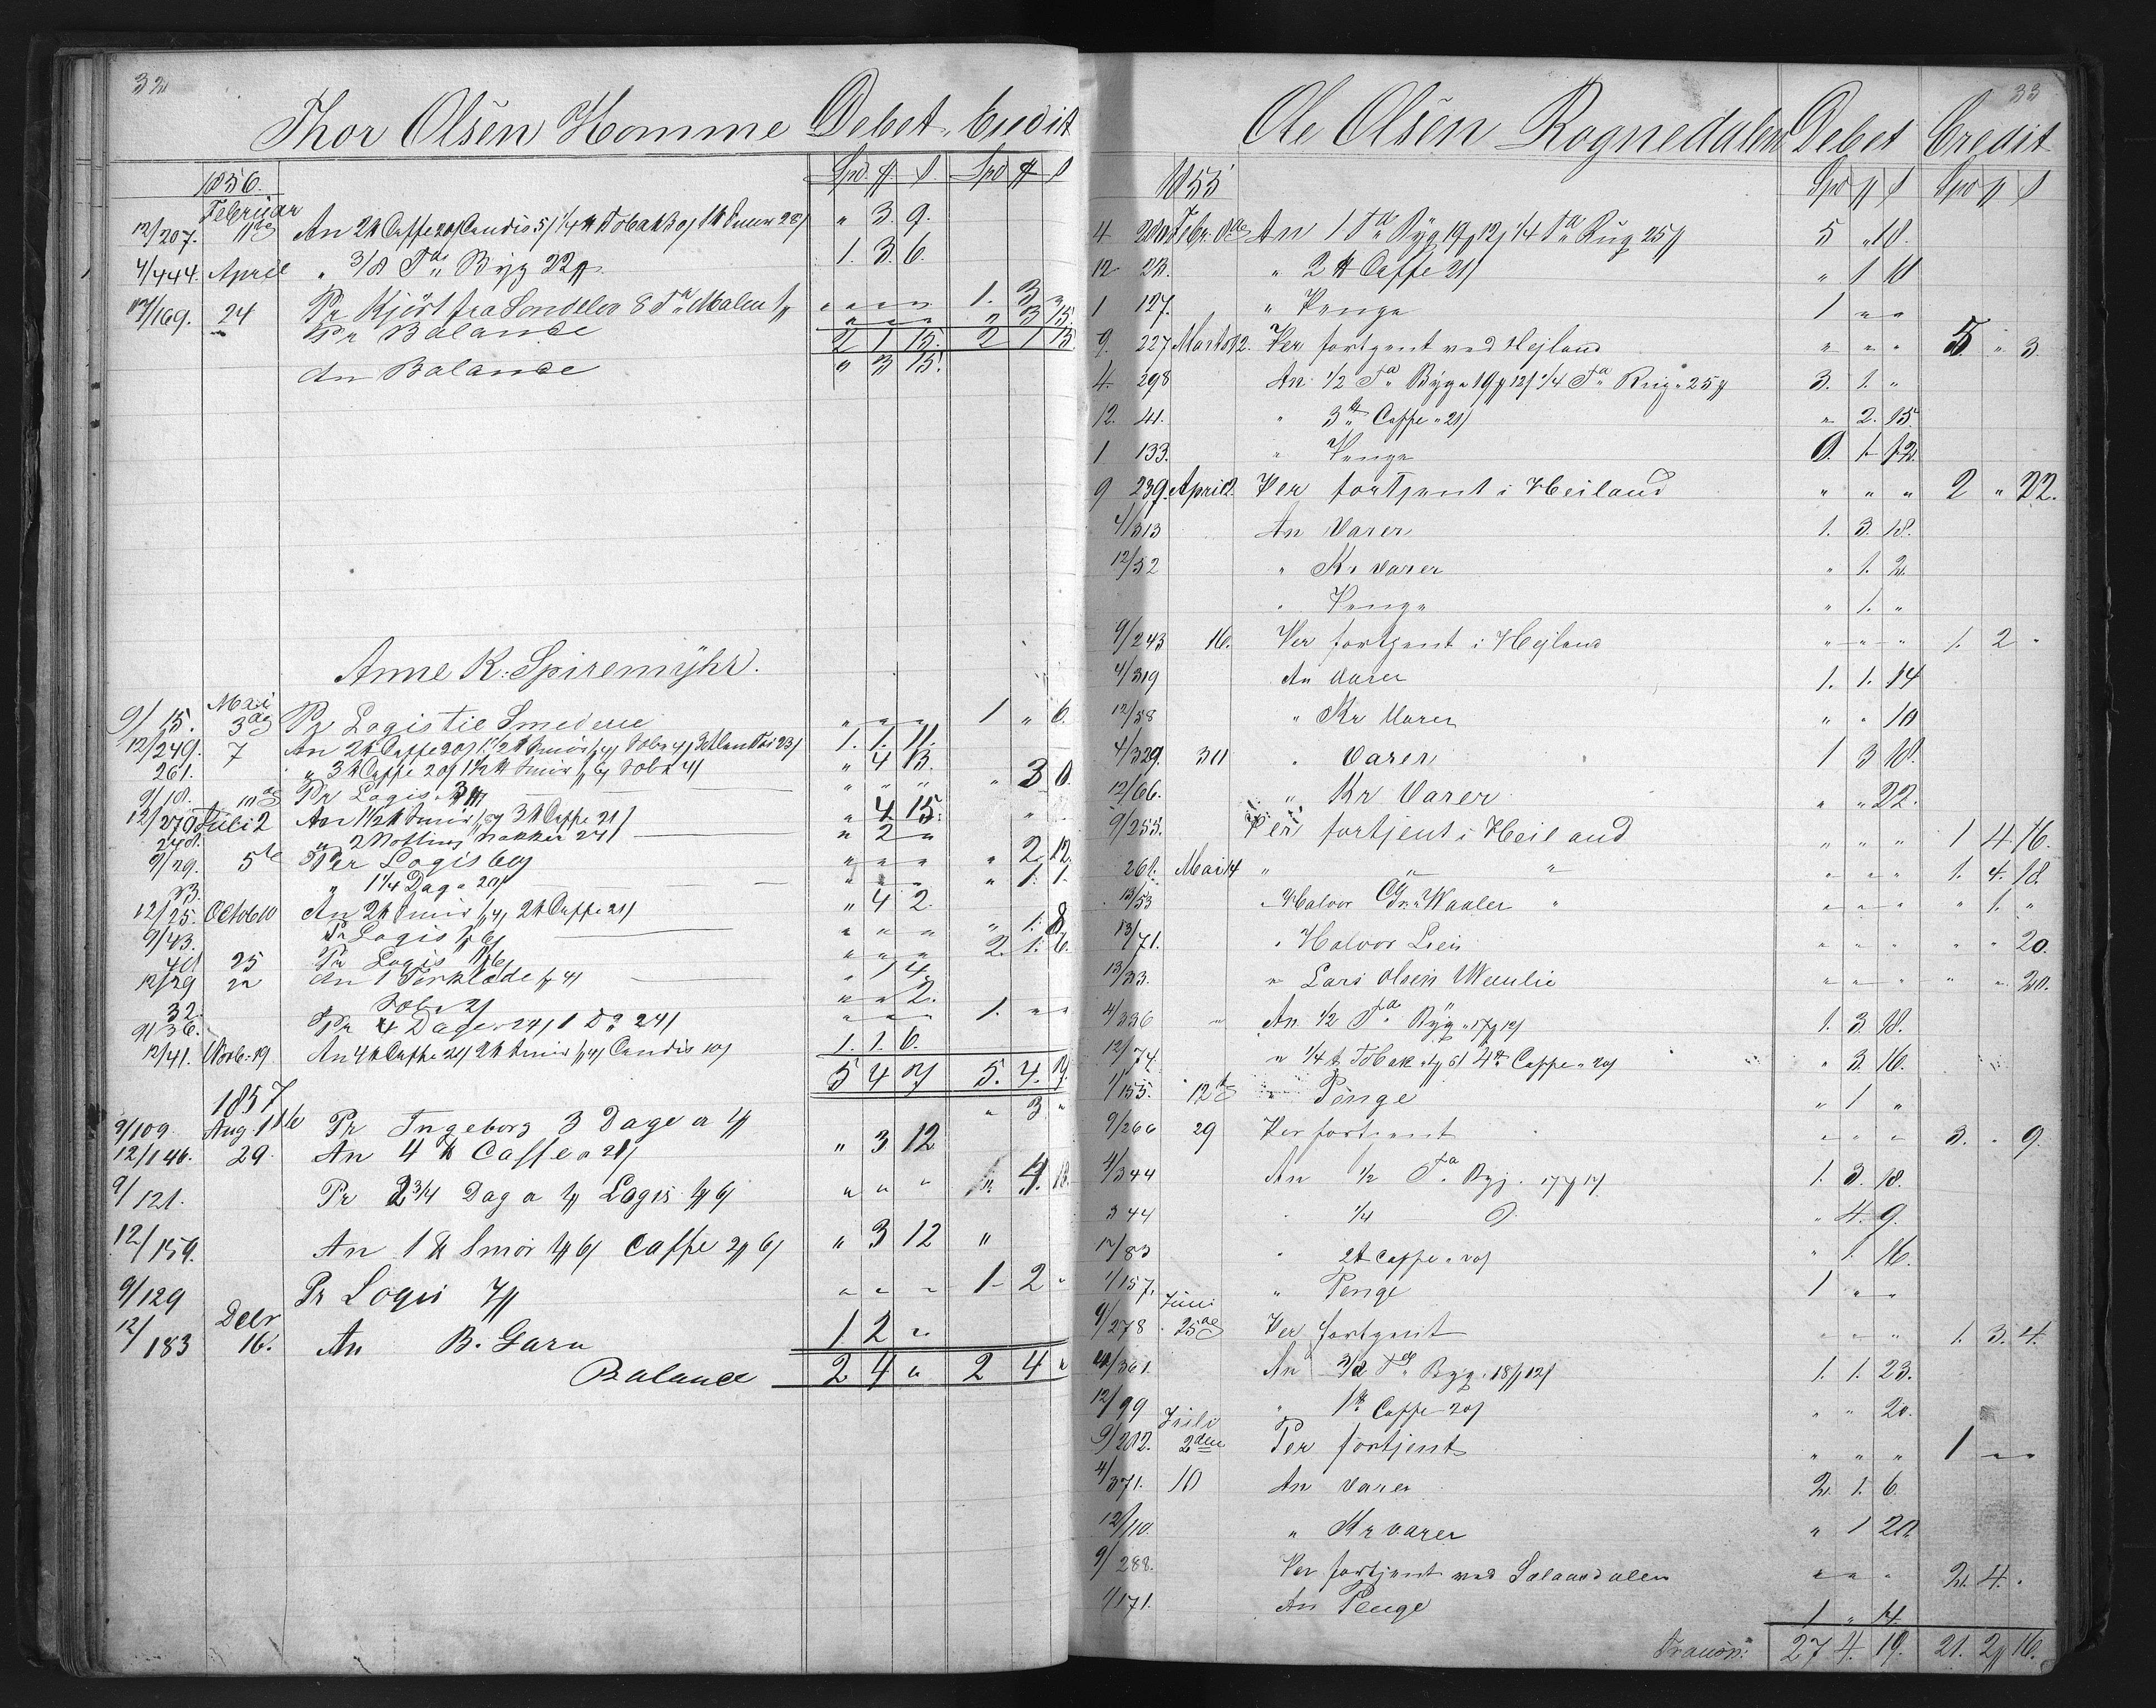 32
Thor Olsen Homme Debet Credit
1856. Spd # s Spd # s
Februar
12/207. 11te An 2 # Caffe 20s Candis 5s 1/4 # Tobak 30s 1 # 28s " 3 9.
4/444. April " 3/8 Tde Byg 22# 1. 3. 6.
169. 24 Pr Kjört fra Söndelev 8 Tdr 1. 3
Pr Balance " 3 15.
2 1 15. 2 1 15
An Balance " 3 15.
Anne K. Spiremyhr.
Mai
9/15. 3die Pr Logis til Smedene " " " 1 " 6.
12/249. 7 An 2 # Caffe 20s 1 1/2 # Smör 1#4s 1. 1. 11.
261. " 3 # Caffe 20s 1 1/2 # Smör 1#6s " 4 13.
9/18. Pr Logis 3# " " " " 3 0
12/270 Juli 2 An 1 1/2 # Smör 3 # Caffe 21s " 4. 15.
" 2 24s " 2 "
9/29. 5te Per Logis 60s " " " " 2 12
33. " 1 1/4 Dag a 20s " " " " 1. 1.
12/25. Octob 10 An 2 # Smör 1#4s 2 # Caffe 21s " 4 2.
9/43. Pr Logis " " " " 1. 8.
25 Pr Logis " " " 2. 1. 6.
12/29 An 1 Törklæde 1#4s " 1 4.
32. " " 2.
9/36. Pr 4 Dage 24s 1 Do 24s " " " 1. " "
12/41. Novb. 19 An 4 # Caffe 21s 2 # Smör 1#4s Candis 10s 1. 1. 6.
5 4 7 5. 4. 19.
1857
9/109. Aug. 1ste Pr Ingeborg 3 Dage a 1# " 3 "
12/146. 29. An 4 # Caffe a 21s " 3 12
9/121. Pr 2 3/4 Dag a 1# Logis 1#6s " " " " 4. 18.
12/159. An 1 # Smör 1#6s Caffe 2#6s " 3 12 "
9/129 Pr Logis 7# " " " 1 - 2 "
Decbr
12/183 16. An B. Garn 1 2 "
Balance 2 4 " 2 4 "
33
Ole Olsen Rognedalen Debet Credit
1855 Spd # s Spd # s
4 Febr. An 1 Tde Byg 19#12s 1/4 Tde Rug 25# 5 " 18.
12 23. " 2 # Caffe 21s " 1 18
1 127. " Penge 1 " "
9. 227 Marts 12. Per fortjent ved Hejland " " " 5 " 3.
4. 298 An 1/2 Tde Byg a 19#12s 1/4 Tde Rug a 25# 3. 1. "
12. 41. " 3 # Caffe a 21s " 2. 15.
1 133. " Penge 0. 1. 12.
9 239. April 2. Per fortjent i Heiland " " " 2 " 22.
4/313 An Varer 1. 3. 18.
12/52 " Kr Varer " 1. 2.
" Penge " 1. "
9/243 16. Per fortjent i Hejland " " " 1. 2 "
4/319 An Varer 1. 1. 14
12/58 " Kr Varer " " 10
4/329. 30 " Varer 1 3 18.
12/66. " Kr Varer " " 22.
9/255. Per fortjent i Heiland " " " 1 4 16.
261. Mai 14 " " " " " " 1. 4. 18.
13/53 " Halvor Waaler " " " " " 1. "
13/71. " Halvor Lien " " " " " 20.
13/33. " Lars Olsen " " " " " 20.
4/336 " An 1/2 Tde Byg a 17#12s 1. 3. 18.
12/74. " 1/4 # Tobak 4 # Caffe a 20s " 3. 16.
1/155. 12te " Penge " 1 "
9/266 29 Per fortjent " " " 3. " 9.
4/344 An 1/2 Tde Byg 1. 3. 18.
344 " 1/4 D " 4. 9.
12/83 " 2 # Caffe a 20s " 1. 16.
1/157. " Penge 1 " "
Juni
9/278 25de Per fortjent " " " 1. 3. 4.
4/361. An 3/8 Tde Byg 18#12s 1. 1. 23.
12/99 " 1 # Caffe 20s " " 20.
Juli
9/282. 2den Per fortjent " " " 1 " "
4/371. 10 An Varer 2. 1. 6.
12/110. " Kr Varer " 1 20
9/288. Per fortjent ved " " " 2. 4. "
1/171. An Penge 1 " 14.
Transp: 27 4. 19. 21. 2# 16.